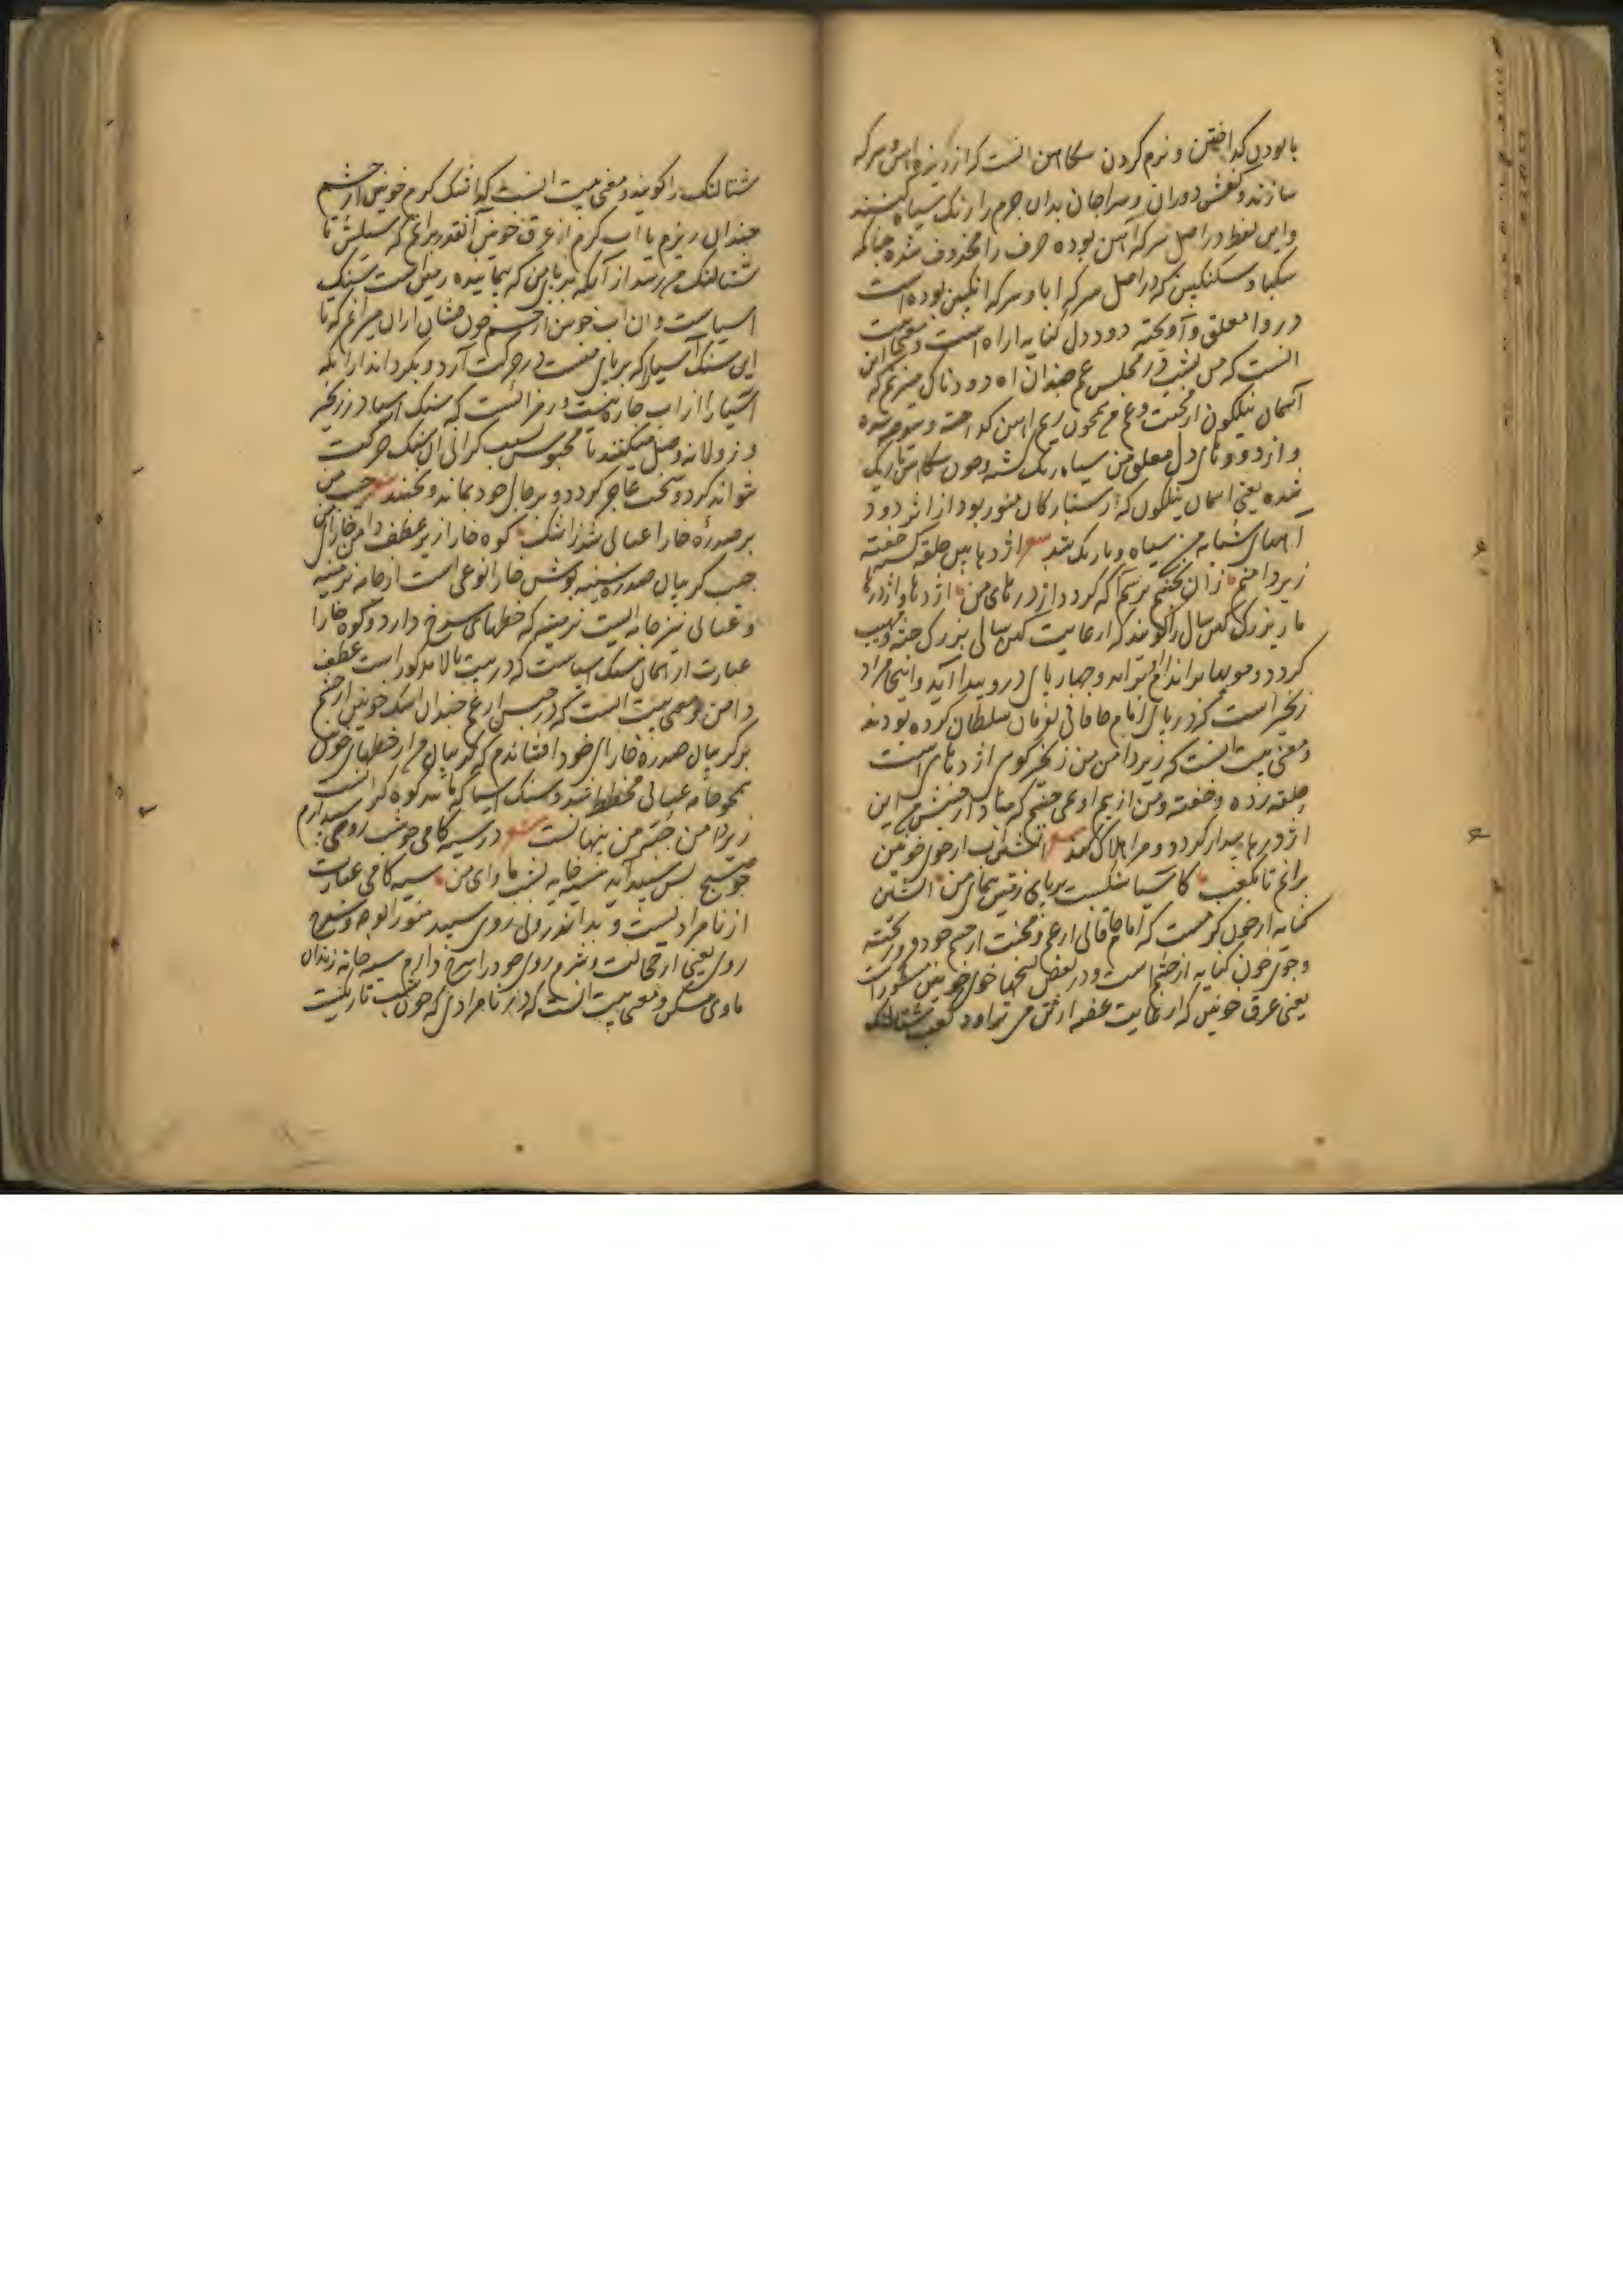 پالودن گداختن و نرم کردن سکاهن آنست که از ریزه آهن و سرکه
سازند و کفش دوزان و سراجان بدان چرم را رنگ سیاه کنند
و این لفظ در اصل سرکه آهن بوده حرف را محذوف شده چنانکه
سکبا و سکنگبین که در اصل سرکه ابا و سرکه انگبین بوده است
دروا معلق و آویخته دود دل کنایه از آه است و معنی بیت
آنست که من بشب در مجلس غم چندان آه دودناک میزنم که این
آسمان نیلگون از محنت و غم من همچون ریم آهن گداخته و سوخته شده
و از دودهای دل معلق من سیاه رنگ شده و چون سکاهن تاریک
شده یعنی آسمان نیلگون که از ستارگان منور بود از اثر دود
آههای شبانه من سیاه و تاریک شد شعر اژدها بین حلقه گشته خفته
زیر دامنم زان نجنبم ترسم آگه گردد اژدرهای من اژدها و اژدرها
مار بزرگ کهن سال را گویند که از غایت کهن سالی بزرگ جثه و مهیب
گردد و مویها بر اندام او برآید و چهار پای درو پیدا آید و اینجا مراد
زنجیر است که در پای امام خاقانی بفرمان سلطان کرده بودند
و معنی بیت آنست که زیر دامن من زنجیر گوی اژدهای است
حلقه زده و خفته و من از بیم او نمی جنبم که مبادا از جنبش من این
اژدرها بیدار گردد و مرا هلاک کند شعر آتشین آب از خوی خونین
برانم تا بکعب کاسیا سنگیست بر پای زمین پیمای من آتشین
کنایه از خون گرمست که امام خاقانی از غم و محنت از چشم خود فرو ریخته
و جوی خون کنایه از چشم است و در بعض نسخها خوی خونین مسطور است
یعنی عرق خونین که از غایت غصه از تن می تراود کعب شتالنگ
شتالنگ را گویند و معنی بیت آنست که اشک گرم خونین از چشم
چندان ریزم یا آب گرم از عرق خونین آنقدر برانم که سیلش تا
شتالنگ می رسد از آنکه بر پای من که پیماینده زمین است سنگ
آسیاست و آن آب خونین از چشم خون فشان از آن میرانم که تا
این سنگ آسیا را که بر پای منست در حرکت آرد و بگرداند از آنکه
آسیا را از آب چاره نیست و رمز آنست که سنگ آسیا در زنجیر
و زولانه وصل میکنند تا محبوس بسبب گرانی آن سنگ حرکت
نتواند کرد و سخت عاجز گردد و بر حال خود بماند و نجنبد شعر جیب من
بر صدرهٔ خارا عتابی شد ز اشک کوه خارا زیر عطف دامن خارای من
جیب گریبان صدره سینه پوش خارا نوعی است از جامه ابریشمینه
و عتابی نیز جامه ایست ابریشمینه که خطهای سرخ دارد و کوه خارا
عبارت از همان سنگ آسیاست که در بیت بالا مذکور است عطف
دامن و معنی بیت آنست که در حبس از غم چندان اشک خونین از چشم
بر گریبان صدرهٔ خارای خود افشاندم که گریبان من از خطهای خونین
همچو جامه عتابی مخطط شد و سنگ آسیا که مانند کوه گران است
زیر دامن جامه من پنهانست شعر در سیه کامی چو شب روی سپید آرم
چو صبح پس سپید آید سیه خانه بشب ماوای من سیه کامی عبارت
از نامرادیست و بداندرونی روی سپید منور الوجه و سرخ
روی یعنی از خجالت و شرم روی خود را سرخ دارم سیه خانه زندان
ماوی مسکن و معنی بیت آنست که در نامرادی که چون شب تاریکیست